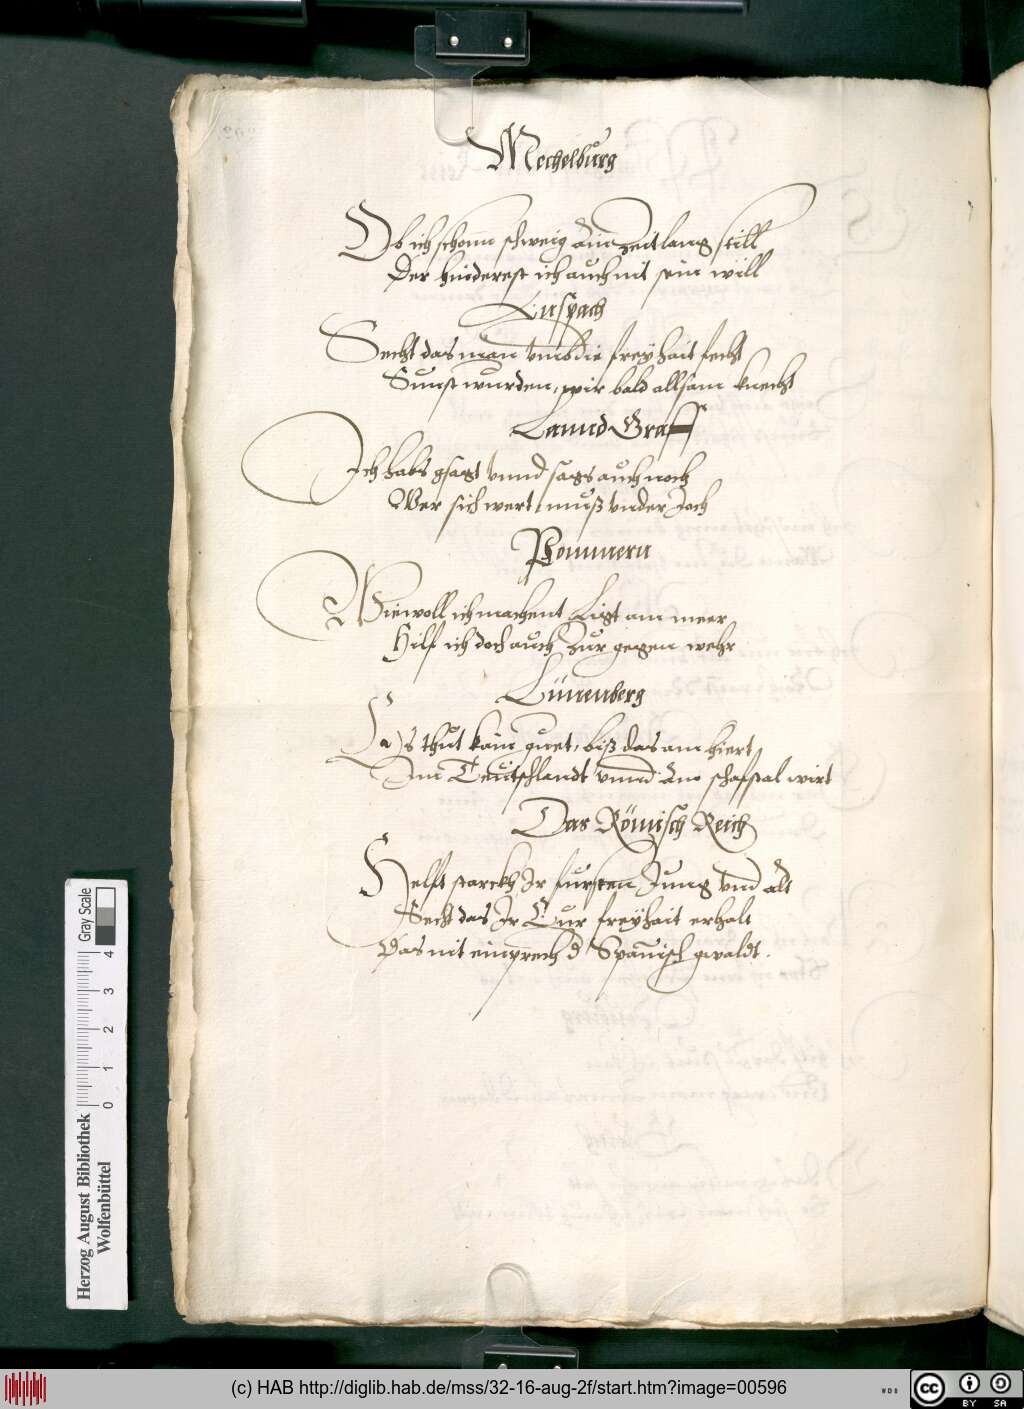 Mechelburg
Ob ich schonn schweig ain zeitlang still
Der hinderest ich auch nit sein will
Anspach
Secht das man vmb die freyhait fecht
Sunst wurden wir bald allsam knecht
Lannd Graff
Ich habs gsagt vnnd sags auch noch
Wer sich wert muß vnder Joch
Pommern
Wiewoll ich machent Ligt am meer
Hilf ich doch auch zur gegen wehr
Lünenberg
Es thut kain guet, biß das am hiert
Im Teutschlandt vnnd ain schafstal wirt
Das Römisch Reich
Helfft starckh Ir fursten Jung vnd alt
Secht das Ir Eur freyhait erhalt
Das nit einprech d Spanisch gwaldt.
Herzog August Bibliothek
Wolfenbüttel
Gray Scale
0 1 2 3 4
(c) HAB http://diglib.hab.de/mss/32-16-aug-2f/start.htm?image=00596
WDB
cc BY SA